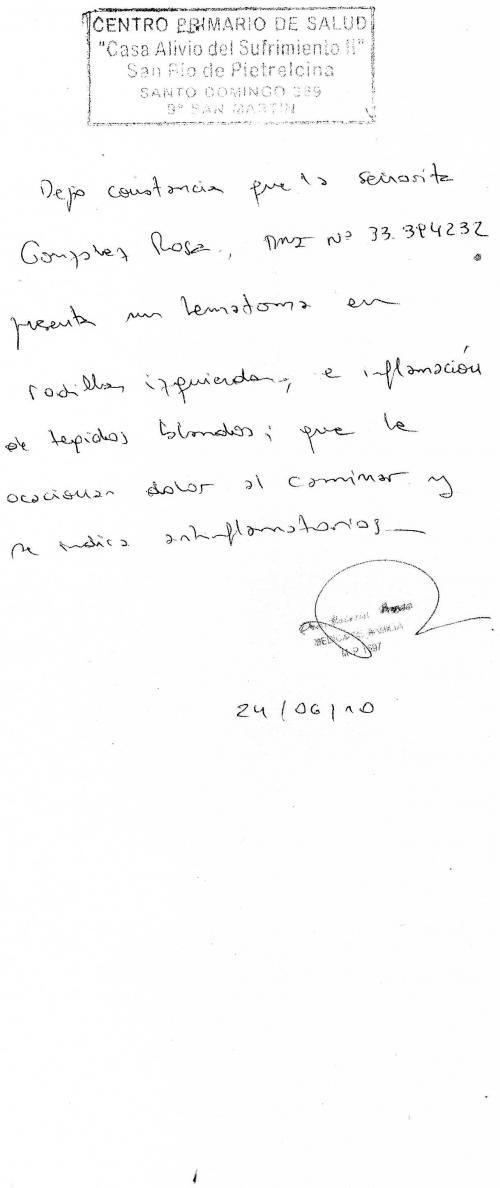 CENTRO PRIMARIO DE SALUD
"Casa Alivio del Sufrimiento II"
San Pio de Pietrelcina
SANTO DOMINGO 389
Bº SAN MARTIN
Dejo constancia que la señorita
Gonzalez Rosa, DNI Nº 33.394232
presenta un hematoma en
rodilla izquierda, e inflamación
de tejidos blandos; que le
ocacionan dolor al caminar y
se indica antinflamatorios
M.P 1397
24/06/10